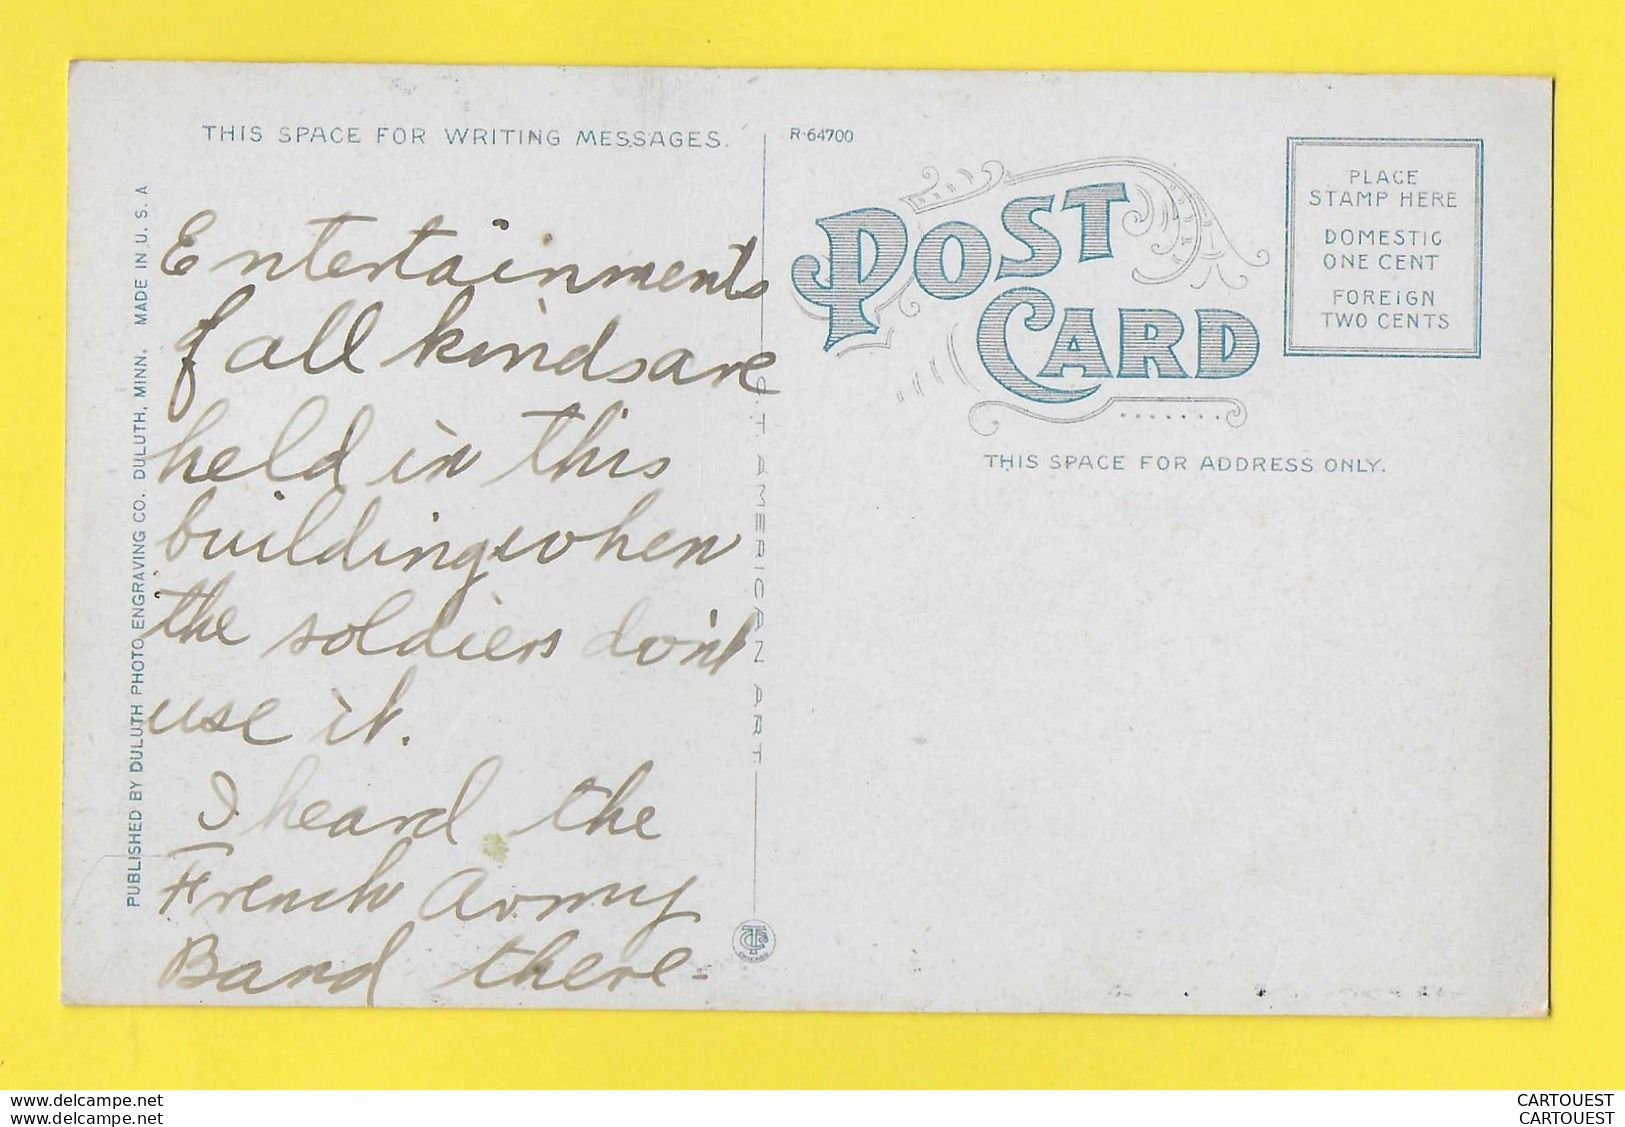 THIS SPACE FOR WRITING MESSAGES.
Entertainments
of all kinds are
held in this
building when
the soldiers don't
use it.
I heard the
French Army
Band there-
PUBLISHED BY DULUTH PHOTO ENGRAVING CO. DULUTH, MINN. MADE IN U.S.A
C.T. AMERICAN ART
R-64700
POST
CARD
PLACE
STAMP HERE
DOMESTIC
ONE CENT
FOREIGN
TWO CENTS
THIS SPACE FOR ADDRESS ONLY.
CHICAGO
delcampe.net
delcampe.net
CARTOUEST
CARTOUEST